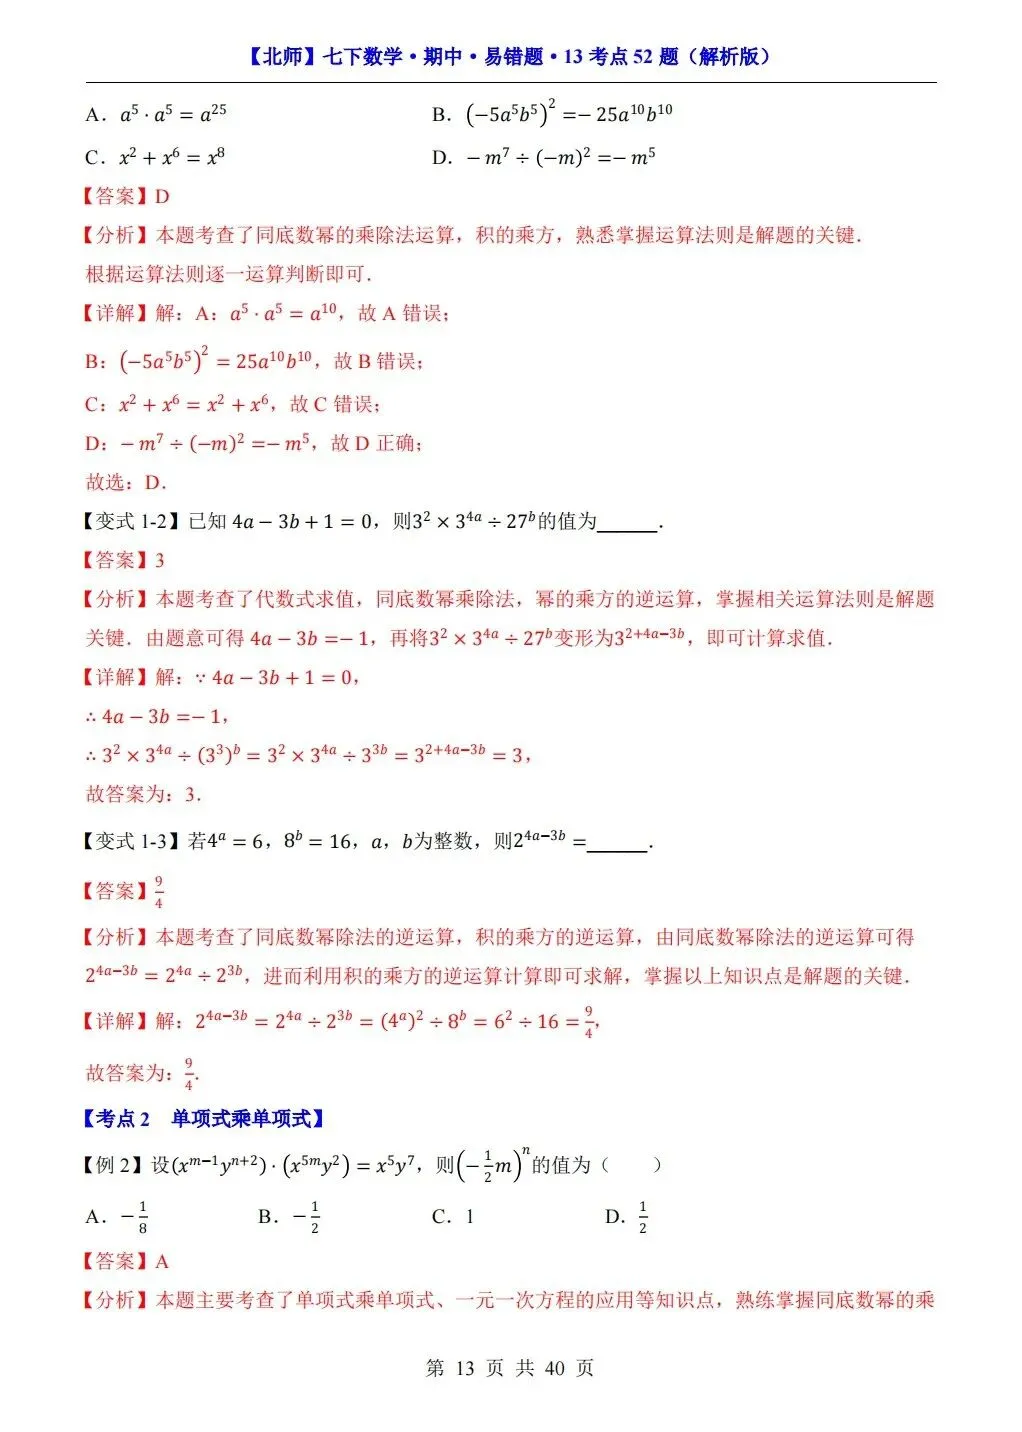 【北师】七下数学·期中·易错题·13 考点 52 题（解析版）
A．a⁵·a⁵=a²⁵ B．(−5a⁵b⁵)²=−25a¹⁰b¹⁰
C．x²+x⁶=x⁸ D．−m⁷÷(−m)²=−m⁵
【答案】D
【分析】本题考查了同底数幂的乘除法运算，积的乘方，熟悉掌握运算法则是解题的关键．
根据运算法则逐一运算判断即可．
【详解】解：A：a⁵·a⁵=a¹⁰，故 A 错误；
B：(−5a⁵b⁵)²=25a¹⁰b¹⁰，故 B 错误；
C：x²+x⁶=x²+x⁶，故 C 错误；
D：−m⁷÷(−m)²=−m⁵，故 D 正确；
故选：D．
【变式 1-2】已知 4a−3b+1=0，则3²×3⁴ᵃ÷27ᵇ的值为______．
【答案】3
【分析】本题考查了代数式求值，同底数幂乘除法，幂的乘方的逆运算，掌握相关运算法则是解题
关键．由题意可得 4a−3b=−1，再将3²×3⁴ᵃ÷27ᵇ变形为3²⁺⁴ᵃ⁻³ᵇ，即可计算求值．
【详解】解：∵ 4a−3b+1=0，
∴ 4a−3b=−1，
∴ 3²×3⁴ᵃ÷(3³)ᵇ=3²×3⁴ᵃ÷3³ᵇ=3²⁺⁴ᵃ⁻³ᵇ=3，
故答案为：3．
【变式 1-3】若4ᵃ=6，8ᵇ=16，a，b为整数，则2⁴ᵃ⁻³ᵇ=______．
【答案】9/4
【分析】本题考查了同底数幂除法的逆运算，积的乘方的逆运算，由同底数幂除法的逆运算可得
2⁴ᵃ⁻³ᵇ=2⁴ᵃ÷2³ᵇ，进而利用积的乘方的逆运算计算即可求解，掌握以上知识点是解题的关键．
【详解】解：2⁴ᵃ⁻³ᵇ=2⁴ᵃ÷2³ᵇ=(4ᵃ)²÷8ᵇ=6²÷16=9/4，
故答案为：9/4．
【考点 2 单项式乘单项式】
【例 2】设(xᵐ⁻¹yⁿ⁺²)·(x⁵ᵐy²)=x⁵y⁷，则(−1/2 m)ⁿ的值为（ ）
A．−1/8 B．−1/2 C．1 D．1/2
【答案】A
【分析】本题主要考查了单项式乘单项式、一元一次方程的应用等知识点，熟练掌握同底数幂的乘
第 13 页 共 40 页